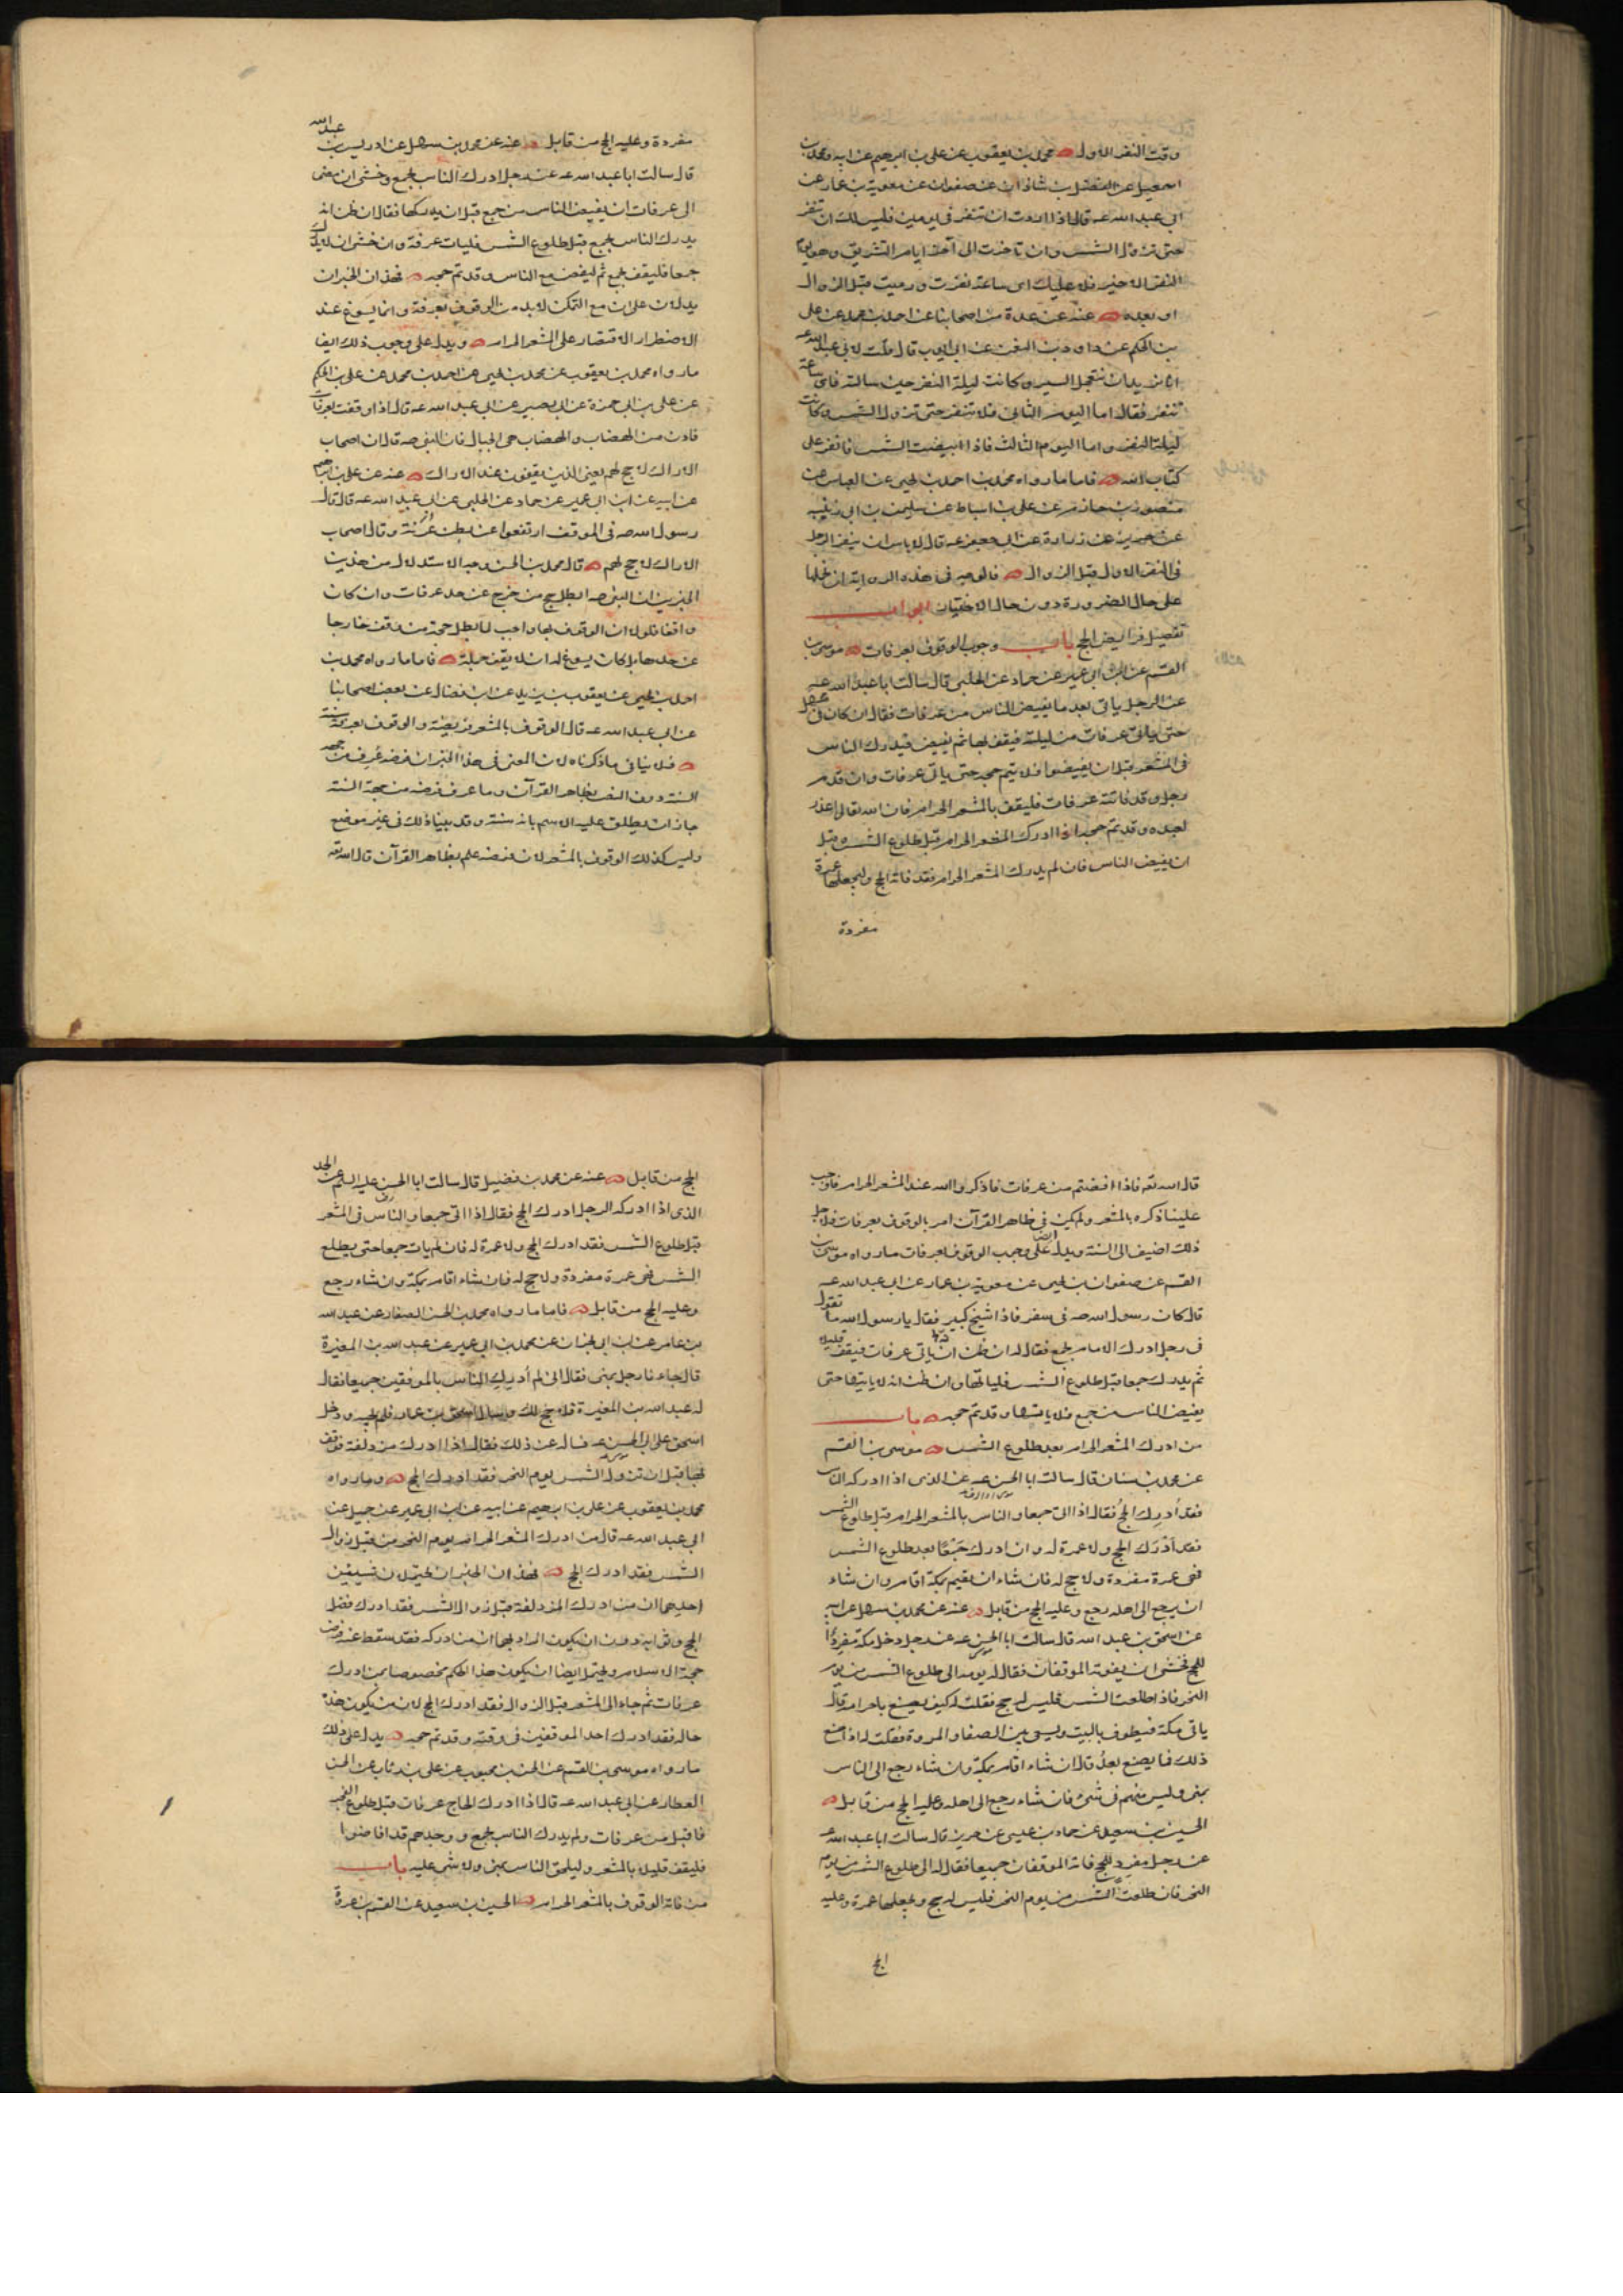 وقت النفر الاول محمد بن يعقوب عن علي بن ابرهيم عن ابيه ومحمد بن
اسمعيل عن الفضل بن شاذان عن صفوان عن معوية بن عمار عن
ابي عبد الله عه قال اذا اردت ان تنفر في يومين فليس لك ان تنفر
حتى تزول الشمس وان تاخرت الى آخر ايام التشريق وهو يوم
النفر الاخير فلا عليك اى ساعة نفرت ورميت قبل الزوال
او بعده عنه عن عدة من اصحابنا عن احمد بن محمد عن علي
بن الحكم عن داود بن النعمن عن ابي ايوب قال قلت لابي عبد الله عه
انا نريد ان نتعجل السير وكانت ليلة النفر حين سالته فاى ساعة
ننفر فقال اما اليوم الثاني فلا تنفر حتى تزول الشمس وكانت
ليلة النفر واما اليوم الثالث فاذا ابيضت الشمس فانفر على
كتاب الله فاما ما رواه محمد بن احمد بن يحيى عن العباس عن
منصور بن حازم عن علي بن اسباط عن سليمن بن ابي زينبه
عن حريز عن زرارة عن ابي جعفر عه قال لاباس ان ينفر الرجل
في النفر الاول قبل الزوال فالوجه في هذه الرواية ان نحملها
على حال الضرورة دون حال الاختيار ابواب
تفصيل فرايض الحج باب وجوب الوقوف بعرفات موسى بن
القسم عن ابن ابي عمير عن حماد عن الحلبي قال سالت ابا عبد الله عه
عن الرجل ياتي بعد ما يفيض الناس من عرفات فقال ان كان في مهل
حتى ياتي عرفات من ليلته فيقف بها ثم يفيض فيدرك الناس
في المشعر قبل ان يفيضوا فلا يتم حجه حتى ياتي عرفات وان قدم
رجل وقد فاتته عرفات فليقف بالمشعر الحرام فان الله تعالى اعذر
لعبده وقد تم حجه اذا ادرك المشعر الحرام قبل طلوع الشمس وقبل
ان يفيض الناس فان لم يدرك المشعر الحرام فقد فاته الحج وليجعلها عمرة
مفردة
مفردة وعليه الحج من قابل عنه عن محمد بن سهل عن ادريس بن عبد الله
قال سالت ابا عبد الله عه عن رجل ادرك الناس بجمع وخشى ان مضى
الى عرفات ان يفيض الناس من جمع قبل ان يدركها فقال ان ظن انه
يدرك الناس بجمع قبل طلوع الشمس فليات عرفة وان خشى ان لا يدرك
جمعا فليقف بجمع ثم ليفض مع الناس وقد تم حجه فهذان الخبران
يدلان على ان مع التمكن لابد من الوقوف بعرفة وانما يسوغ عند
الاضطرار الاقتصار على المشعر الحرام ويدل على وجوب ذلك ايضا
ما رواه محمد بن يعقوب عن محمد بن يحيى عن احمد بن محمد عن علي بن الحكم
عن علي بن ابي حمزة عن ابي بصير عن ابي عبد الله عه قال اذا وقفت بعرفات
فادن من الهضاب والهضاب هي الجبال فان النبي صه قال ان اصحاب
الاراك لا حج لهم يعني الذين يقفون عند الاراك عنه عن علي بن ابرهيم
عن ابيه عن ابن ابي عمير عن حماد عن الحلبي عن ابي عبد الله عه قال قال
رسول الله صه في الموقف ارتفعوا عن بطن عرنة وقال اصحاب
الاراك لا حج لهم قال محمد بن الحسن وجه الاستدلال من هذين
الخبرين ان النبي صه ابطل حج من خرج عن حد عرفات وان كان
واقفا فلولا ان الوقوف بها واجب لما بطل حجة من وقف خارجا
عن حدها بل كان يسوغ له ان لا يقف جملة فاما ما رواه محمد بن
احمد بن يحيى عن يعقوب بن يزيد عن ابن فضال عن بعض اصحابنا
عن ابي عبد الله عه قال الوقوف بالمشعر فريضة والوقوف بعرفة سنة
فلا ينافي ما ذكرناه لان المعنى في هذا الخبر ان فرضه عرف من جهة
السنة دون النص بظاهر القرآن وما عرف فرضه من جهة السنة
جاز ان يطلق عليه الاسم بانه سنة وقد بينا ذلك في غير موضع
وليس كذلك الوقوف بالمشعر لان فرضه علم بظاهر القرآن قال الله تعه
قال الله تعه فاذا افضتم من عرفات فاذكروا الله عند المشعر الحرام فاوجب
علينا ذكره بالمشعر ولم يكن في ظاهر القرآن امر بالوقوف بعرفات فلاجل
ذلك اضيف الى السنة ويدل على وجوب الوقوف بعرفات ما رواه موسى بن
القسم عن صفوان بن يحيى عن معوية بن عمار عن ابي عبد الله عه
قال كان رسول الله صه في سفر فاذا شيخ كبير فقال يا رسول الله ما تقول
في رجل ادرك الامام بجمع فقال له ان ظن ان ياتي عرفات فيقف قليلا
ثم يدرك جمعا قبل طلوع الشمس فلياتها وان ظن انه لا ياتيها حتى
يفيض الناس من جمع فلا ياتها وقد تم حجه باب
من ادرك المشعر الحرام بعد طلوع الشمس موسى بن القسم
عن محمد بن سنان قال سالت ابا الحسن عه عن الذي اذا ادركه الناس
فقد أدرك الحج فقال اذا اتى جمعا والناس بالمشعر الحرام قبل طلوع الشمس
فقد أدرك الحج ولا عمرة له وان ادرك جمعا بعد طلوع الشمس
فهي عمرة مفردة ولا حج له فان شاء ان يقيم بمكة اقام وان شاء
ان يرجع الى اهله رجع وعليه الحج من قابل عنه عن محمد بن سهل عن ابيه
عن اسحق بن عبد الله قال سالت ابا الحسن عه عن رجل دخل مكة مفردا
للحج فخشى ان يفوته الموقفان فقال له يومه الى طلوع الشمس من يوم
النحر فاذا طلعت الشمس فليس له حج فقلت له كيف يصنع باحرامه قال
ياتي مكة فيطوف بالبيت ويسعى بين الصفا والمروة فقلت له اذا صنع
ذلك فما يصنع بعد قال ان شاء اقام بمكة وان شاء رجع الى الناس
بمنى وليس منهم في شئ فان شاء رجع الى اهله وعليه الحج من قابل
الحسين بن سعيد عن حماد بن عيسى عن حريز قال سالت ابا عبد الله عه
عن رجل مفرد للحج فاته الموقفان جميعا فقال له الى طلوع الشمس من يوم
النحر فان طلعت الشمس من يوم النحر فليس له حج ويجعلها عمرة وعليه
الحج
الحج من قابل عنه عن محمد بن فضيل قال سالت ابا الحسن عليه السلم عن الحد
الذي اذا ادركه الرجل ادرك الحج فقال اذا اتى جمعا والناس في المشعر
قبل طلوع الشمس فقد ادرك الحج ولا عمرة له فان لم يات جمعا حتى يطلع
الشمس فهي عمرة مفردة ولا حج له فان شاء اقام بمكة وان شاء رجع
وعليه الحج من قابل فاما ما رواه محمد بن الحسن الصفار عن عبد الله
بن عامر عن ابن ابي نجران عن محمد بن ابي عمير عن عبد الله بن المغيرة
قال جاءنا رجل بمنى فقال انى لم أدرك الناس بالموقفين جميعا فقال
له عبد الله بن المغيرة فلا حج لك وسال اسحق بن عمار فلم يجبه ودخل
اسحق على ابي الحسن عه فساله عن ذلك فقال اذا ادرك مزدلفة فوقف
بها قبل ان تزول الشمس يوم النحر فقد ادرك الحج وما رواه
محمد بن يعقوب عن علي بن ابرهيم عن ابيه عن ابن ابي عمير عن جميل عن
ابي عبد الله عه قال من ادرك المشعر الحرام يوم النحر من قبل زوال
الشمس فقد ادرك الحج فهذان الخبران يحتملان شيئين
احدهما ان من ادرك المزدلفة قبل زوال الشمس فقد ادرك فضل
الحج وثوابه دون ان يكون المراد بهما ان من ادركه فقد سقط عنه فرض
حجة الاسلام ويحتمل ايضا ان يكون هذا الحكم مخصوصا بمن ادرك
عرفات ثم جاء الى المشعر قبل الزوال فقد ادرك الحج لان من يكون هذا
حاله فقد ادرك احد الموقفين في وقته وقد تم حجه يدل على ذلك
ما رواه موسى بن القسم عن الحسن بن محبوب عن علي بن رئاب عن الحسن
العطار عن ابي عبد الله عه قال اذا ادرك الحاج عرفات قبل طلوع الفجر
فاقبل من عرفات ولم يدرك الناس بجمع ووجدهم قد افاضوا
فليقف قليلا بالمشعر وليلحق الناس بمنى ولا شى عليه باب
من فاته الوقوف بالمشعر الحرام الحسين بن سعيد عن القسم بن عروة